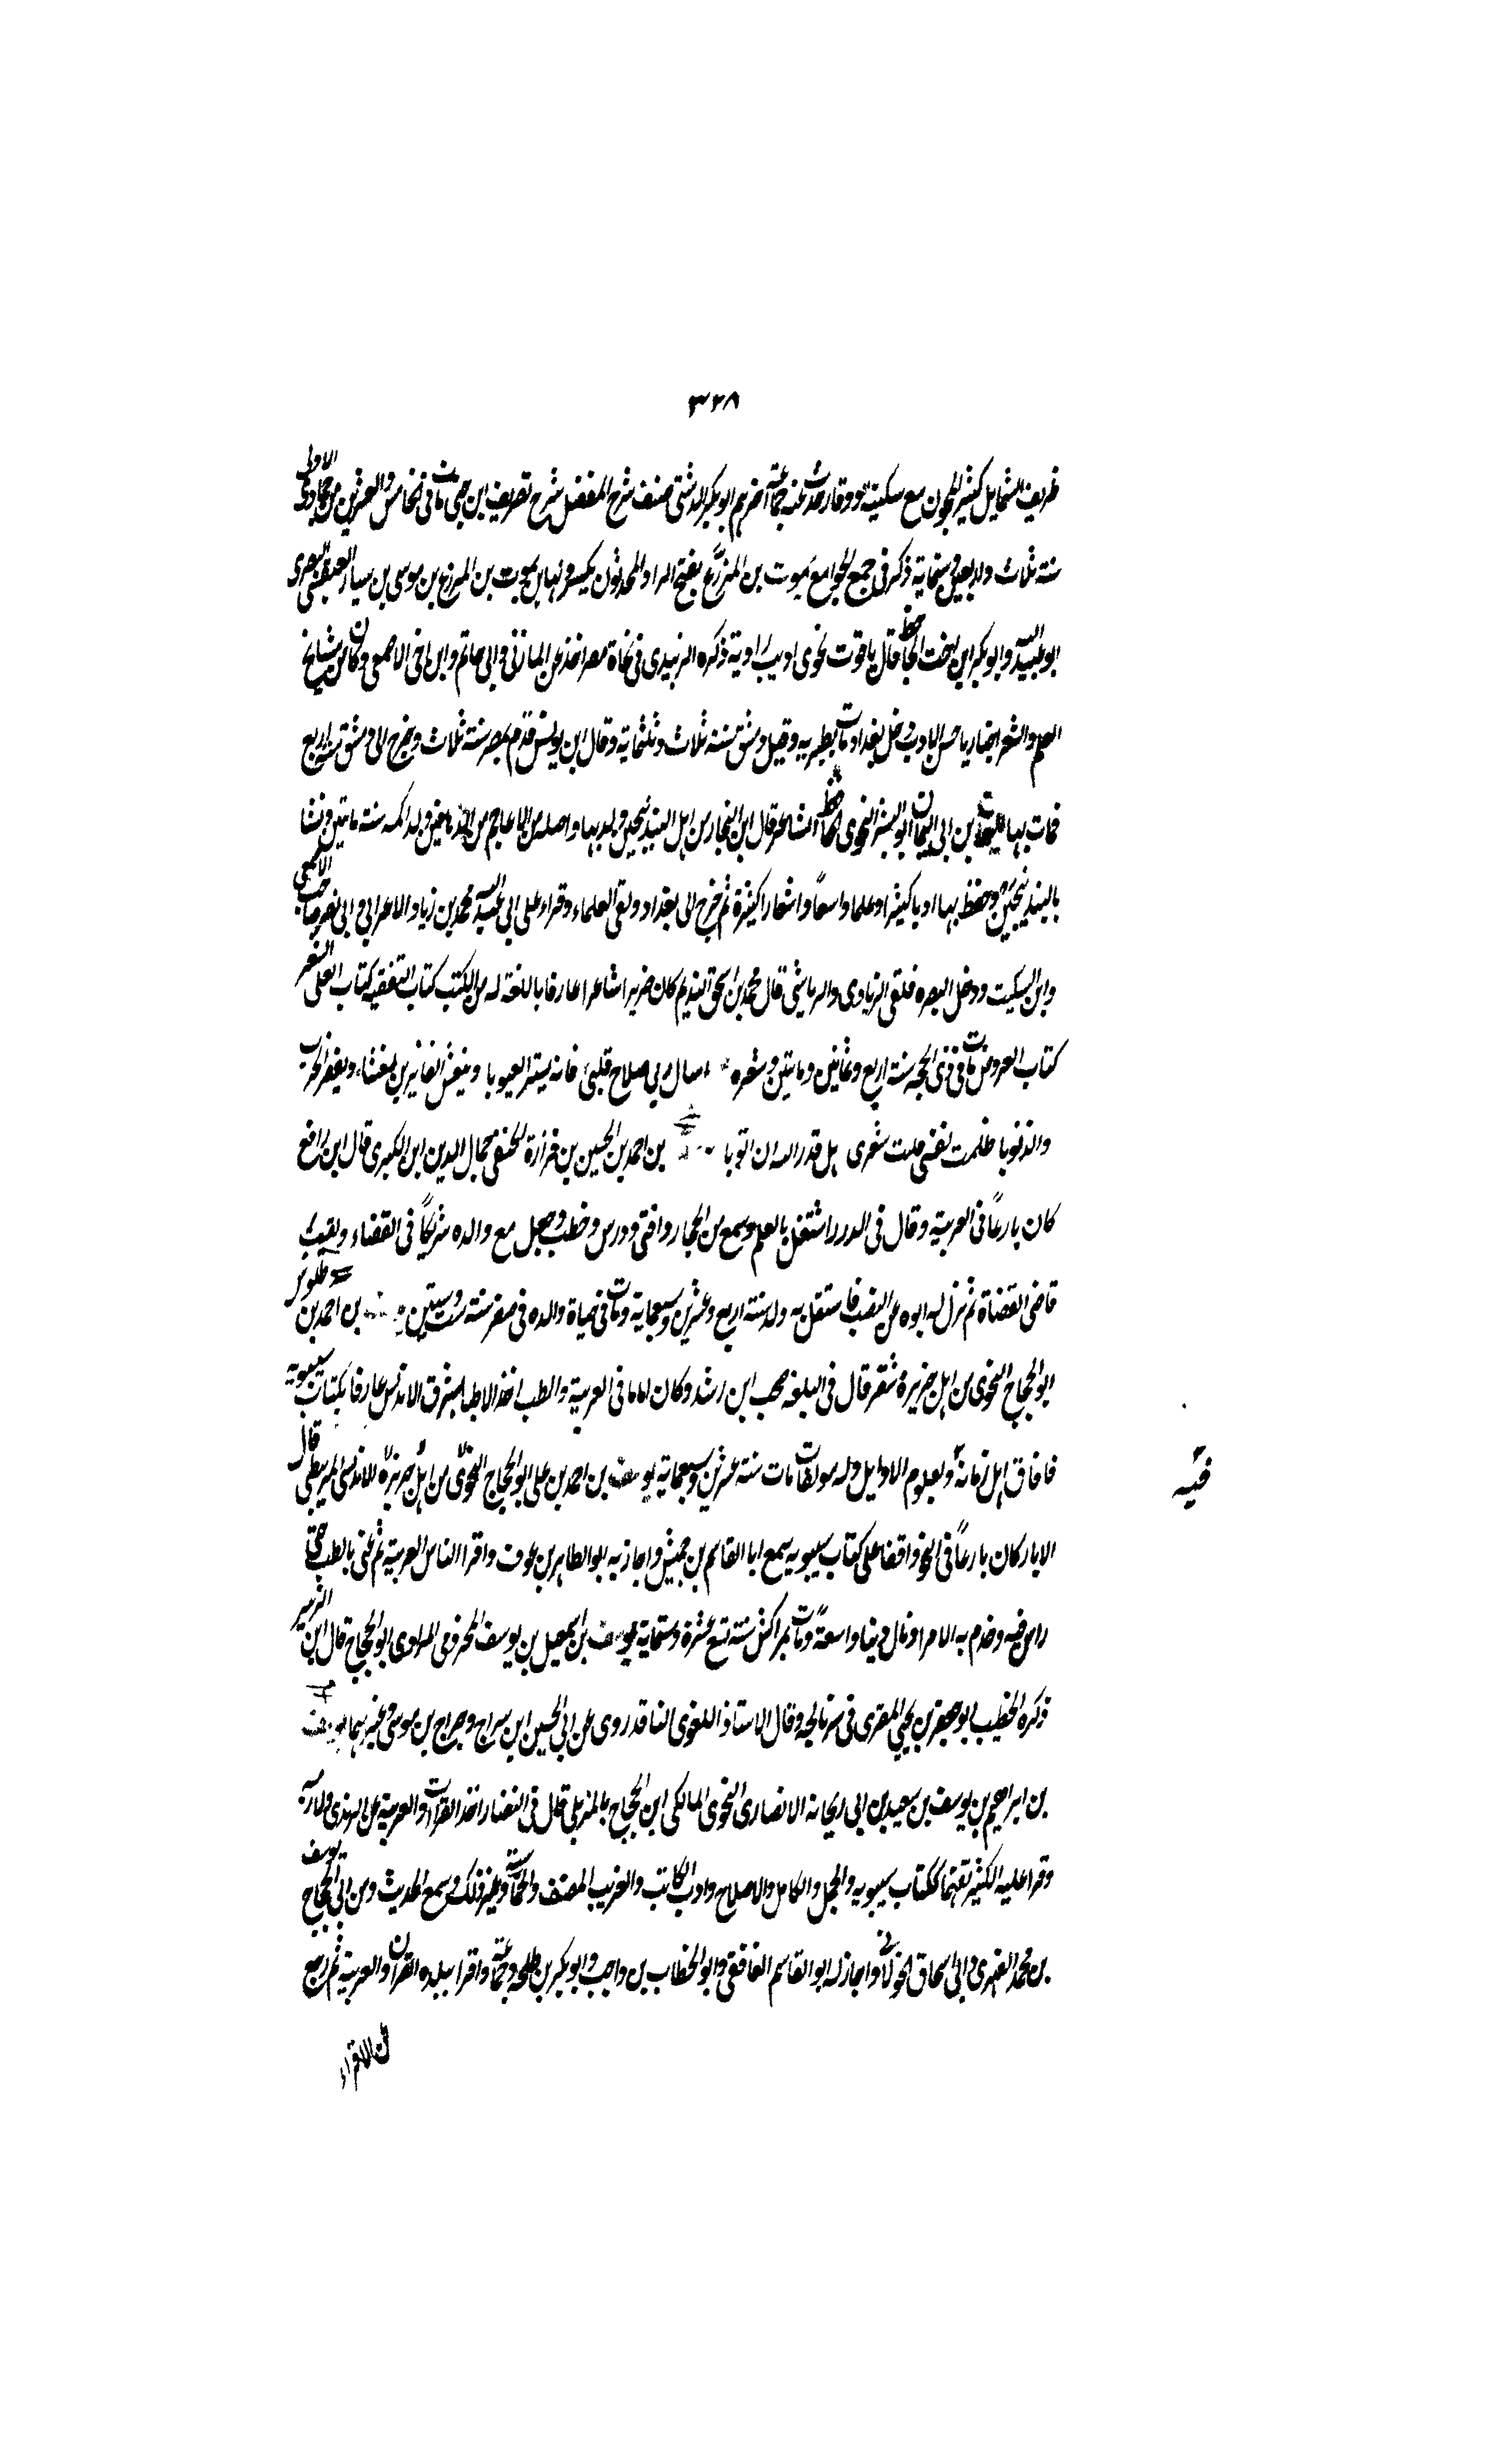 ٣٢٨
ظريف الشمايل كثير المجون مع سكينة ووقار حدث عنه جماعة اخرهم ابو بكر الدشتي صنف شرح المفصل شرح تصريف ابن جني مات في الخامس والعشرين من جمادى الاولى
سنة ثلاث واربعين وستماية ذكر في جمع الجوامع يموت بن المزرع بفتح الراء والمحدثون يكسرونها بن يموت بن المزرع بن موسى بن سيار العبقسي البصري
ابو عبد الله وابو بكر ابن اخت الجاحظ قال ياقوت نحوي اديب راوية ذكره الزبيدي في نحاة مصر اخذ عن المازني وابي حاتم وابن اخي الاصمعي وكان من مشايخ
العلم والشعر اخباريا حسن الاداب دخل بغداد ومات بطبريه وقيل دمشق سنة ثلاث وثلثماية وقال ابن يونس قدم مصر سنة ثلاث وخرج الى دمشق سنة اربع
فمات بها بن ابي اليمان ابو البشر النحوي الشاعر قال ابن النجار من اهل البندنيجين ولد بها واصله من الاعاجم من الدهاقين ولد اكمه سنة مايتين ونشا
بالبندنيجين وحفظ بها ادبا كثيرا وعلما واسعًا واشعارا كثيرة ثم خرج الى بغداد ولقي العلماء وقراء على ابي عبد الله محمد بن زياد الاعرابي وابي نصر صاحب الاصمعي
وابن السكيت ودخل البصره فلقي الزيادي والرياشي قال محمد بن اسحق النديم كان ضريرا شاعرا عارفا باللغة له من الكتب كتاب التقفيه كتاب
كتاب العروض مات في ذي الحجه سنة اربع وثمانين ومايتين وشعره ربي صلاح قلبي فانه يستر العيوبا
والذنوبا ظلمت نفسي هل قدر الله ان اتوبا بن احمد بن الحسين بن فزارة الحنفي جمال الدين ابن الكفري قال ابن رافع
كان بارعًا في العربية وقال في الدرر اشتغل بالعلم وسمع من الحجار وافتى ودرس وخطب وجعل مع والده شريكًا في القضاء ولقب
قاضي القضاة ثم نزل له ابوه عن المنصب فاستقل به ولد سنة اربع وعشرين وسبعماية ومات في حياة والده في صفر سنة ست وستين بن احمد بن طلوس
ابو الحجاج النحوي من اهل جزيرة شقر قال في البلغه صحب ابن رشد وكان اماما في العربية والطب اخر الاطباء بشرق الاندلس عارفا بكتاب سيبويه
فافاق اهل زمانه وبعلوم الاوايل وله مولفات مات سنة عشرين وسبعماية يوسف بن احمد بن علي ابو الحجاج النحوي من اهل جزيرة الاندلسي المربيطري قال
الابار كان بارعًا في النحو واقفا على كتاب سيبويه سمع ابا القاسم بن حبيش واجاز به ابو الطاهر بن عوف واقرا الناس العربية ثم عني بالطب حتى
راس فيه وخدم به الامرا ونال دنيا واسعةً ومات بمراكش سنة تسع عشرة وستماية يوسف بن اسمعيل بن يوسف المخزومي المرادي ابو الحجاج قال ابن الزبير
ذكره الخطيب ابو جعفر بن يحيى المقري في برنامجه وقال الاستاذ اللغوي الناقد روى عن ابي الحسين ابن سراج وجراح بن موسى وغيرهما يوسف
بن ابراهيم بن يوسف بن سعيد بن ابي ريحانة الانصاري النحوي المالكي ابن الحجاج بالمزبلي قال في النضار اخذ القرآت والعربية عن الرندي ولازمه
وقرا عليه الكثير تفهما ككتاب سيبويه والجمل والكامل والاصلاح وادب الكاتب والغريب المصنف والحماسة وغير ذلك وسمع الحديث ومن ابي الحجاج يوسف
بن محمد الفهري وابي اسحاق الخولاني واجاز له ابو القاسم الغافقي وابو الخطاب بن واجب وابو بكر بن طلحه وجماعة واقرا ببلده القران والعربية ثم رجع
فيه